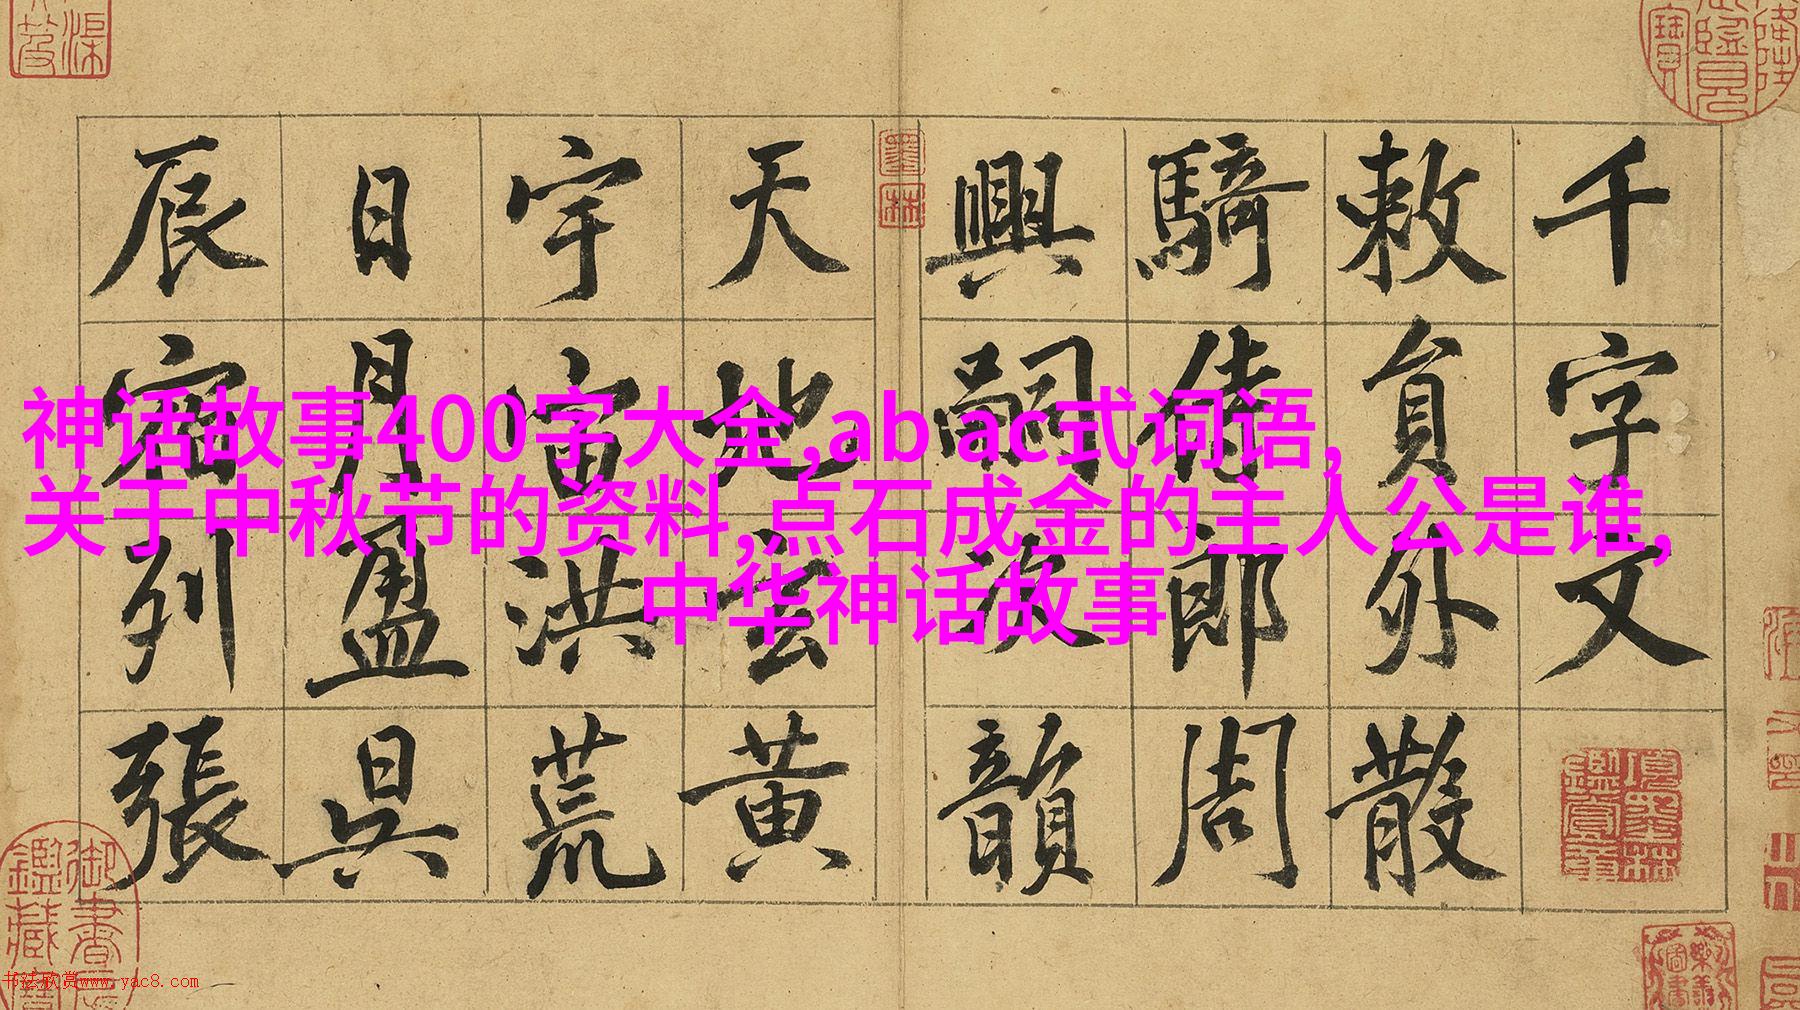 神话故事400字大全,ab ac式词语,
关于中秋节的资料,点石成金的主人公是谁,
中华神话故事
千字文
敕員外散
騎侍郎周
興嗣次韻
天地玄黄
宇宙洪荒
日月盈昃
辰宿列張
墨林
书法欣赏www.yac8.com